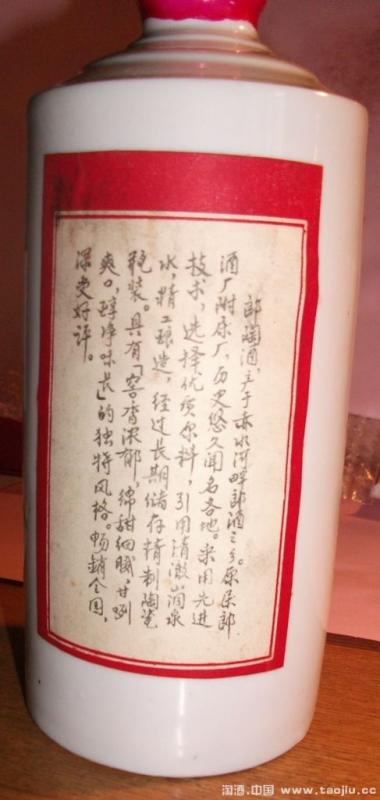 郎陶酒，产于赤水河畔郎酒之乡。原属郎
酒厂附属厂，历史悠久闻名各地。采用先进
技术，选择优质原料，引用清澈山涧泉
水，精工酿造，经过长期储存精制陶瓷
瓶装。具有「窖香浓郁，绵甜细腻，甘洌
爽口，醇净味长」的独特风格。畅销全国，
深受好评。
淘酒.中国 www.taojiu.cc